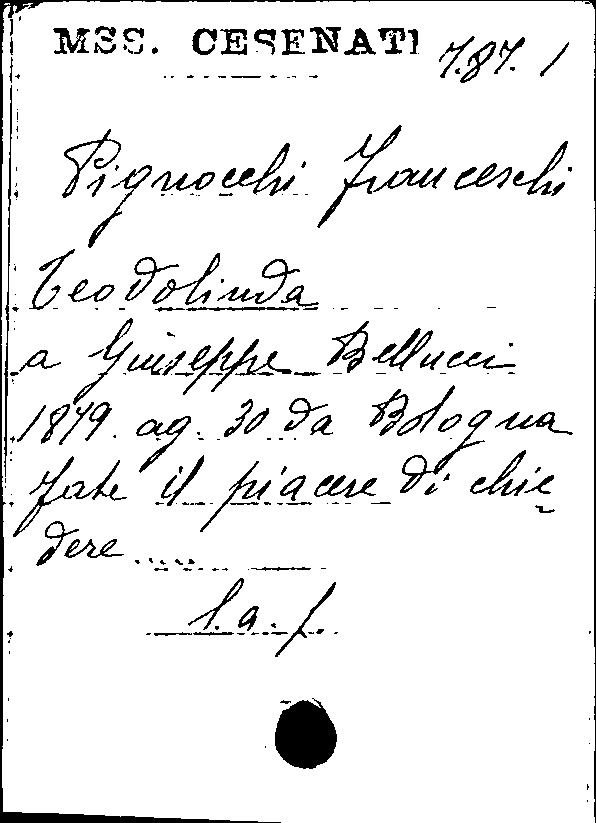 MSS. CESENATI 7.87.1
Pignocchi Franceschi
Teodolinda
a Giuseppe Bellucci
1879 ag. 30 da Bologna
fate il piacere di chie-
dere .....
l.a.f.